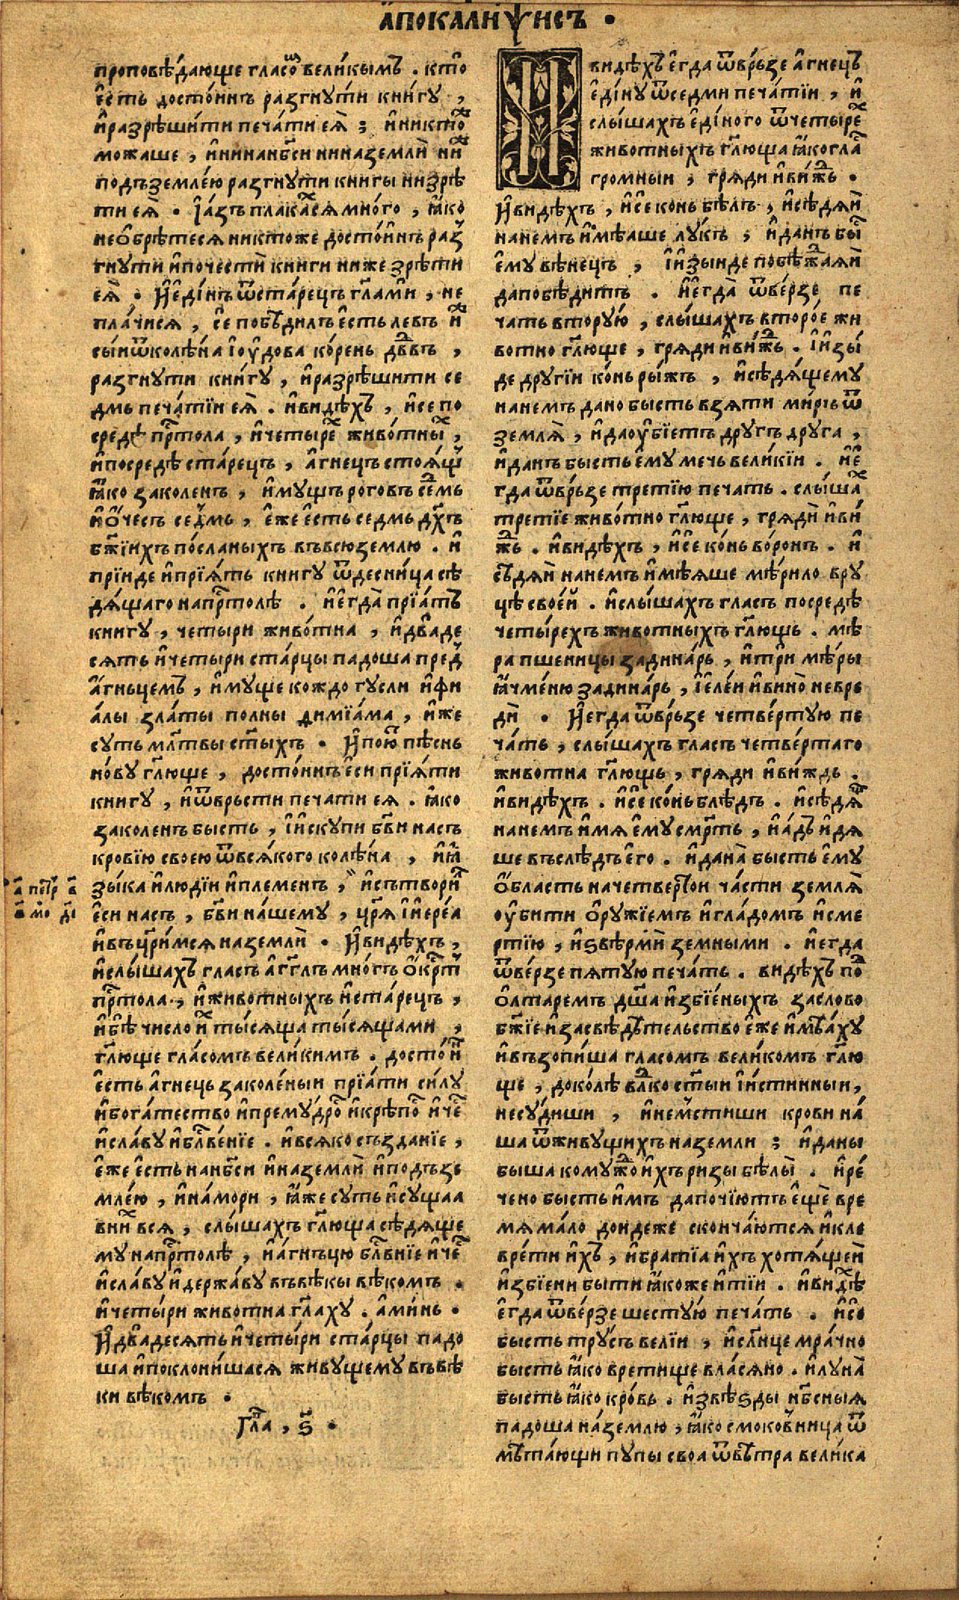 а҆покалиѱисъ •
проповѣ́дающе гласо́ⷨ вели́кымъ . кто̀
є҆́сть достои́нъ разгнꙋ́ти кни́гꙋ ,
и҆разрѣши́ти печа́ти еѧ̀ ; и҆никто́ⷤ
можаше , и҆нинанб҃си ниназемлѝ ниⷤ
подъземле́ю разгнꙋти книгы низрѣ
ти еѧ̀ • І҆а́зъ плака́ⷯсѧ мно́го , ꙗ҆́ко
нео҆брѣ́тесѧ никтоже досто́инъ раⷥ
гнꙋти и҆почестѝ книги ниже зрѣти
еѧ̀ • И҆є҆ди́нъ ѿста́рецъ гл҃ами , не
пла́чисѧ , се́ побѣди́лъ є҆́сть левъ иⷤ
сы́и ѿколѣ́на і҆ꙋ҆́дова ко́рень дв҃въ ,
разгнꙋти кни́гꙋ , и҆разрѣши́ти се
дмь печа́тїи еѧ̀ . и҆видѣхъ , и҆се по
средѣ̀ прⷭ҇тола , и҆четыре живо́тныⷯ ,
и҆посредѣ ста́рецъ , а҆́гнецъ стоѧ́щⷩ
ꙗ҆́ко заколенъ , и҆мꙋщъ роговъ се́дмь
и҆ѻ҆́чесъ се́дмь , є҆́же є҆́сть седмь дх҃ъ
бж҃їихъ по́сланыхъ въвсю́землю . и҆
прїиде и҆прїѧ́тъ книгꙋ ѿдесни́ца сѣ
дѧ́щаго напрⷭ҇толѣ . и҆є҆гда̀ прїа́тъ
книгꙋ , четыри живо́тна , и҆два́де
сѧть и҆четы́ри ста́рцы падоша преⷣ
а҆́гньцемъ , и҆мꙋще кождо гꙋсли и҆фи
а́лы зла́ты полны димїа́ма , и҆́же
сꙋть мл҃твы ст҃ыхъ • И҆пою́ⷮ пѣснь
но́вꙋ гл҃юще , досто́инъ є҆си прїѧ́ти
книгꙋ , и҆ѿврьсти печати еѧ . ꙗ҆́ко
заколенъ бысть , і҆и҆скꙋпи бг҃ви насъ
кровїю своею ѿвсѧ́кого колѣ́на , и҆ꙗ҆
зы́ка и҆лю́дїи и҆племенъ , и҆сътвори́лⷧ
є҆си насъ , бг҃ви на́шемꙋ , цр҃ѧ і҆и҆ере́а
и҆въцр҃и́мсѧ наземлѝ • И҆видѣ́хъ ,
и҆слы́шахъ гласъ а҆́гг҃лъ мно́гъ ѻ҆́крⷭ҇тъ
прⷭ҇тола , и҆живо́тныхъ и҆ста́рецъ ,
и҆бѣ̀ число и҆ⷯ ты́сѧща ты́сѧщами ,
гл҃юще гла́сомъ вели́кимъ . досто́инⷩ
є҆сть а҆́гнець заколе́ныи прїа́ти си́лꙋ
и҆бога́тество и҆премꙋ́дроⷭ҇ и҆крѣ́поⷭ҇ и҆че́ⷭ҇
и҆сла́вꙋ и҆блⷭ҇ве́нїе . и҆всѧ́ко създа́нїе ,
є҆́же є҆́сть нанб҃си и҆наземлѝ и҆подъзе
мле́ю , и҆на́мори , ꙗ҆́же сꙋть и҆сꙋщаа
вниⷯ всѧ , слы́шахъ гл҃юща сѣдѧ́ще
мꙋ напрⷭ҇толѣ , и҆а́гньцю блⷭ҇внїе и҆че́ⷭ҇
и҆сла́вꙋ и҆держа́вꙋ въвѣ́кы вѣ́комъ .
и҆четы́ри живо́тна гл҃ахꙋ . а҆ми́нь •
И҆два́десѧть и҆четы́ри ста́рцы падо
ша и҆поклони́шасѧ живꙋщемꙋ въвѣ
ки вѣ́комъ •
Гл҃а , ѕ҃ •
а҃ пеⷮр в҃
в҃ мⷪ҇ д҃і
И
видѣхъ є҆гда ѿврьзе а҆́гнець
є҆ди́нꙋ ѿседми печа́тїи , и҆
слы́шахъ є҆ди́ного ѿчеты́реⷯ
живо́тныхъ гл҃юща ꙗ҆́коглаⷭ҇
громныи , грѧди и҆ви́жⷣь •
И҆видѣхъ , и҆се конь бѣ́лъ , и҆сѣдѧ́и
нанемъ и҆мѣ́аше лꙋкъ ; и҆данъ быⷭ҇
є҆мꙋ вѣне́цъ , і҆и҆зы́иде побѣжⷣа́ѧи
дапобѣ́дитъ . и҆є҆гда̀ ѿве́рзе пе
чать вторꙋ́ю , слы́шахъ второ́е жи
вотно гл҃юще , грѧди и҆ви́жⷣь . І҆и҆зы́
де дрꙋгїи ко́нь ры́жъ , и҆сѣ́дѧ́щемꙋ
нанемъ дано бысть взѧти миръ ѿ
землѧ̀ , и҆даꙋ҆бїетъ дрꙋгъ дрꙋга ,
и҆данъ бы́сть є҆мꙋ мечь вели́кїи . и҆є҆
гда ѿврьзе третїю печать . слы́шаⷯ
третїе живо́тно гл҃юще , грѧдѝ и҆ви́
жⷣь . и҆видѣхъ , и҆се ко́нь во́ронъ . и҆
сѣдѧ́и нанемъ и҆мѣ́ѧше мѣрило врꙋ
цѣ свое́й . и҆слы́шахъ гласъ посредѣ
четы́рехъ живо́тныхъ гл҃ющь . мѣ́
ра пшеницы задина́рь , и҆три мѣ́ры
ꙗ҆чме́ню задина́рь , і҆еле́и и҆вино̀ невре
дѝ • И҆є҆гда ѿврьзе четве́ртꙋю пе
ча́ть , слы́шахъ гласъ четве́ртаго
живо́тна гл҃ющь , грѧди и҆ви́ждь .
и҆видѣхъ . и҆се ко́нь блѣ́дъ . и҆сѣдѧ́иⷩ
нанемъ и҆мѧ є҆мꙋ сме́рть , и҆а́дъ и҆дѧ
ше въслѣ́дъ є҆го . и҆дана̀ бысть є҆мꙋ
ѻ҆́бласть начетвер҃ои ча́сти землѧ̀
ꙋ҆би́ти ѻ҆рꙋ́жїемъ и҆гла́домъ и҆сме
ртїю , и҆ѕвѣ́рмѝ земны́ми . и҆є҆гда
ѿве́рзе пѧтꙋю печа́ть . видѣ́хъ поⷣ
ѻ҆лтаремъ дш҃а и҆збїе́ныхъ засло́во
бж҃їе и҆засвѣдѣ́тельство є҆́же и҆мѣ́ахꙋ
и҆възопи́ша гла́сомъ вели́комъ гл҃ю
ще , доко́лѣ влⷣко ст҃ыи і҆и҆́стинныи ,
несꙋ́диши , и҆немⷭ҇тиши кро́ви на́
ша ѿживꙋ́щихъ наземли ; и҆даны
быша комꙋ́жⷣо и҆хъ ри́зы бѣ́лы . и҆ре́
чено бысть и҆мъ дапочїютъ є҆щѐ вре
мѧ ма́ло до́ндеже сконча́ютсѧ и҆кле
вре́ти и҆хъ , и҆бра́тїа и҆хъ хотѧ́щеи
и҆збїени бы́ти ꙗ҆́коже и҆тїи . и҆видѣⷯ
є҆гда ѿве́рзе шестꙋ́ю печа́ть . и҆се
бы́сть трꙋ́съ ве́лїи , и҆слⷩ҇це мра́чно
бы́сть ꙗ҆́ко вретище власѧ́но . и҆лꙋна̀
бысть ꙗ҆́ко кро́вь . и҆звѣ́ѕды нбⷭ҇ныѧ
падоша на́землю , ꙗ҆́ко смоко́вница ѿ
мѣта́ющи пꙋпы своа ѿвѣ́тра вели́ка